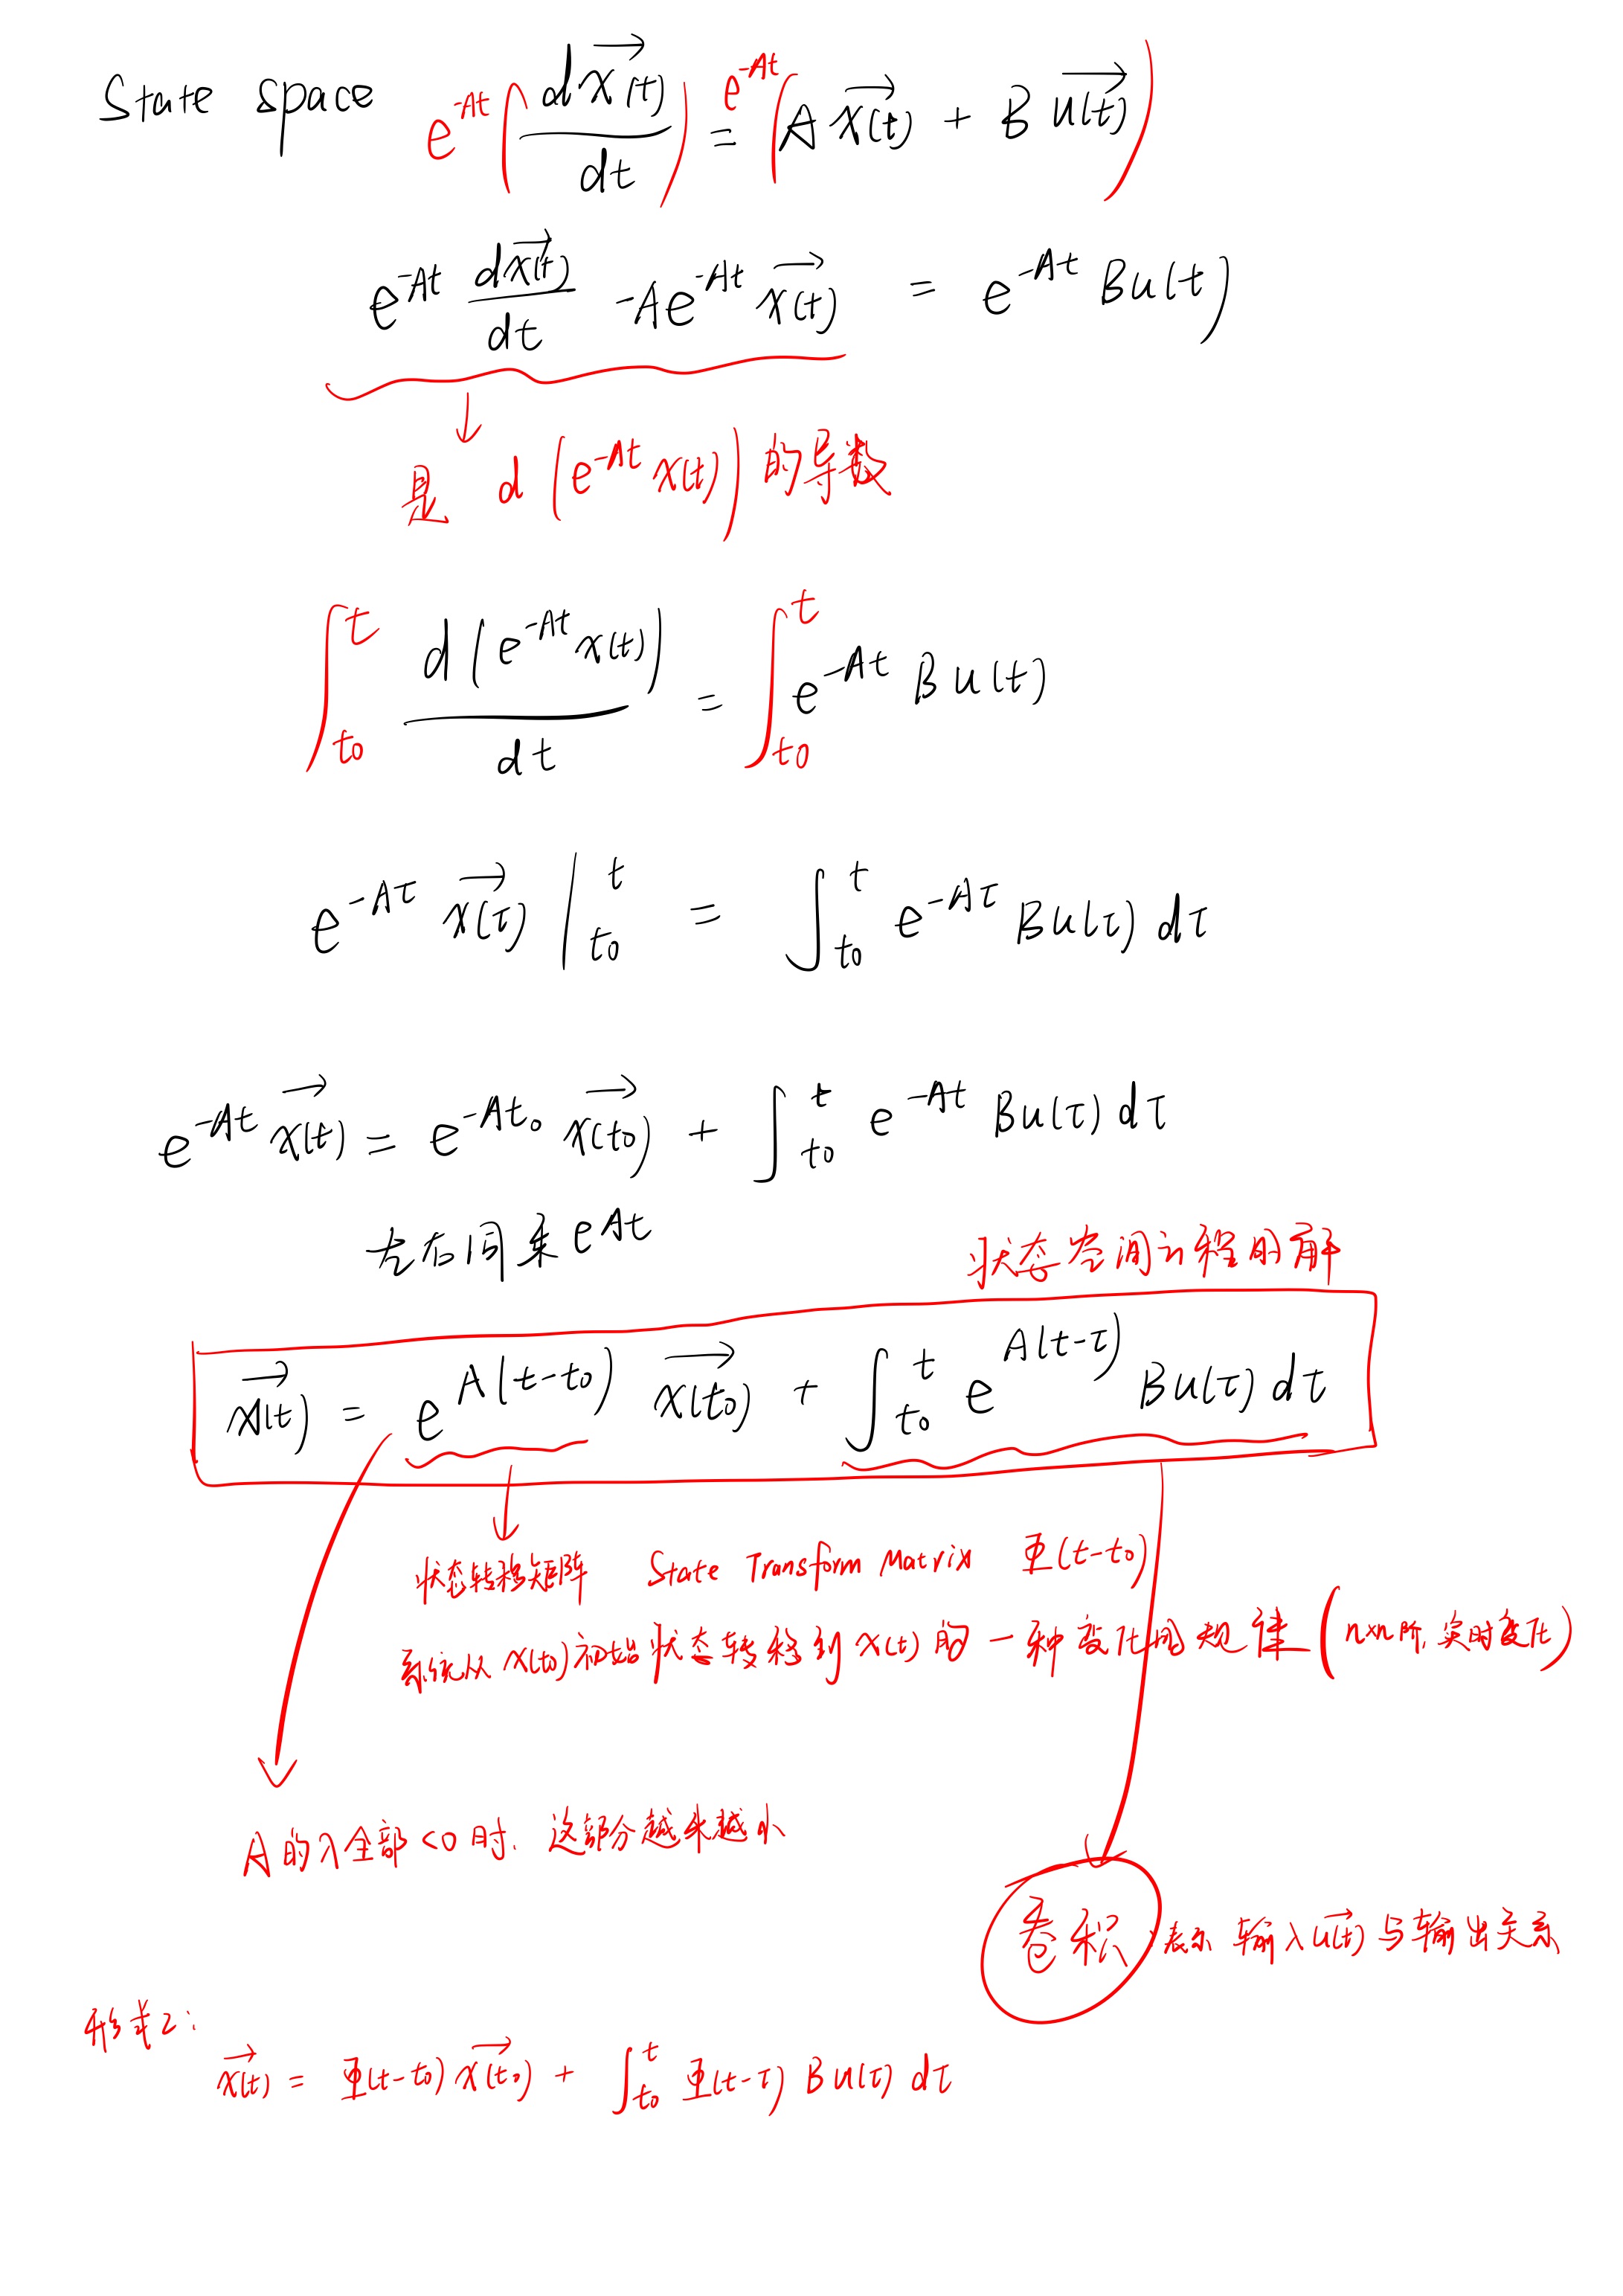 State space e^{-At}(d\vec{x(t)}/dt) = e^{-At}(A\vec{x(t)} + B\vec{u(t)})
e^{-At} d\vec{x(t)}/dt -Ae^{-At}\vec{x(t)} = e^{-At}Bu(t)
是 d(e^{-At}x(t))的导数
∫_{t0}^{t} d(e^{-At}x(t))/dt = ∫_{t0}^{t} e^{-At}Bu(t)
e^{-Aτ}\vec{x(τ)}|_{t0}^{t} = ∫_{t0}^{t} e^{-Aτ}Bu(τ)dτ
e^{-At}\vec{x(t)} = e^{-At0}\vec{x(t0)} + ∫_{t0}^{t} e^{-At}Bu(τ)dτ
左右同乘e^{At}
状态空间方程的解
\vec{x(t)} = e^{A(t-t0)}\vec{x(t0)} + ∫_{t0}^{t} e^{A(t-τ)}Bu(τ)dτ
状态转移矩阵 State Transform Matrix Φ(t-t0)
系统从x(t0)初始状态转移到x(t)的一种变化的规律(n×n阶,实时变化)
A的λ全部<0时,这部分越来越小
卷积 表示输入\vec{u(t)}与输出关系
形式2:
\vec{x(t)} = Φ(t-t0)\vec{x(t0)} + ∫_{t0}^{t} Φ(t-τ)Bu(τ)dτ